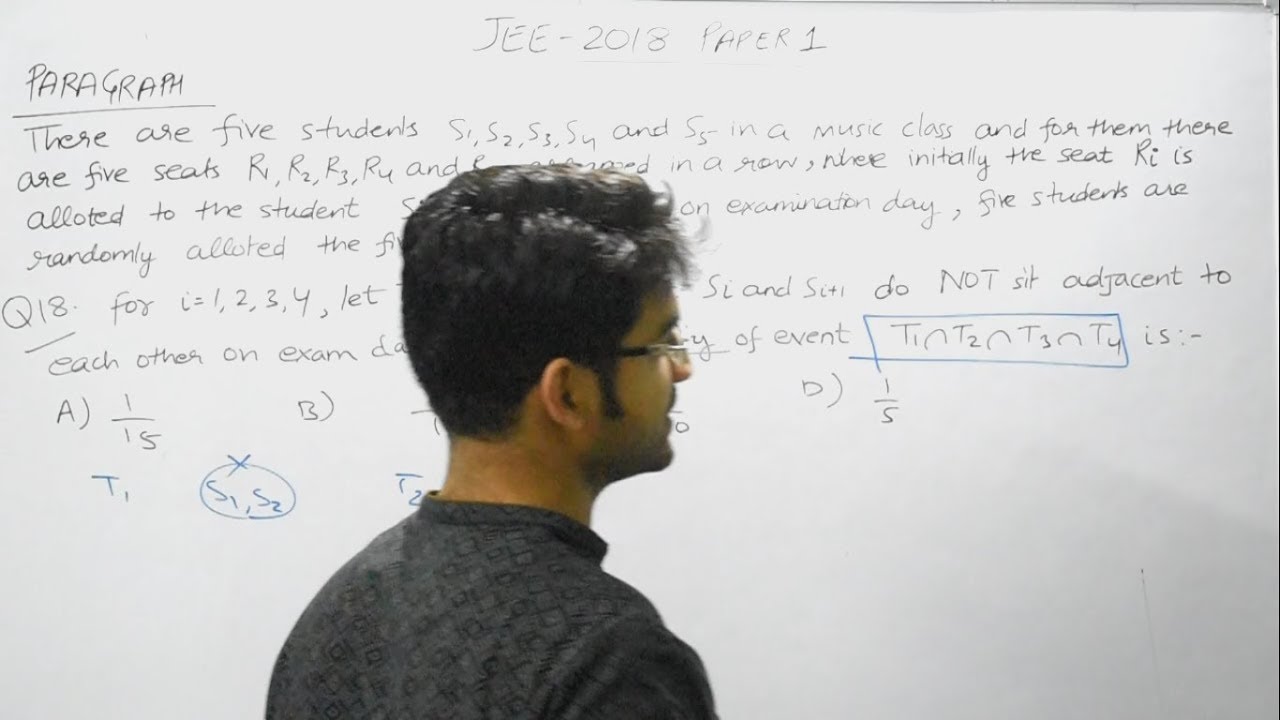 JEE-2018 PAPER 1
PARAGRAPH
There are five students S1, S2, S3, S4 and S5 in a music class and for them there
are five seats R1, R2, R3, R4 and in a row, where initally the seat Ri is
alloted to the student on examination day, five students are
randomly alloted the
Q18. for i=1, 2, 3, 4, let Si and Si+1 do NOT sit adjacent to
each other on exam of event T1∩T2∩T3∩T4 is:-
A) 1/15 B) D) 1/5
T1 S1, S2 T2